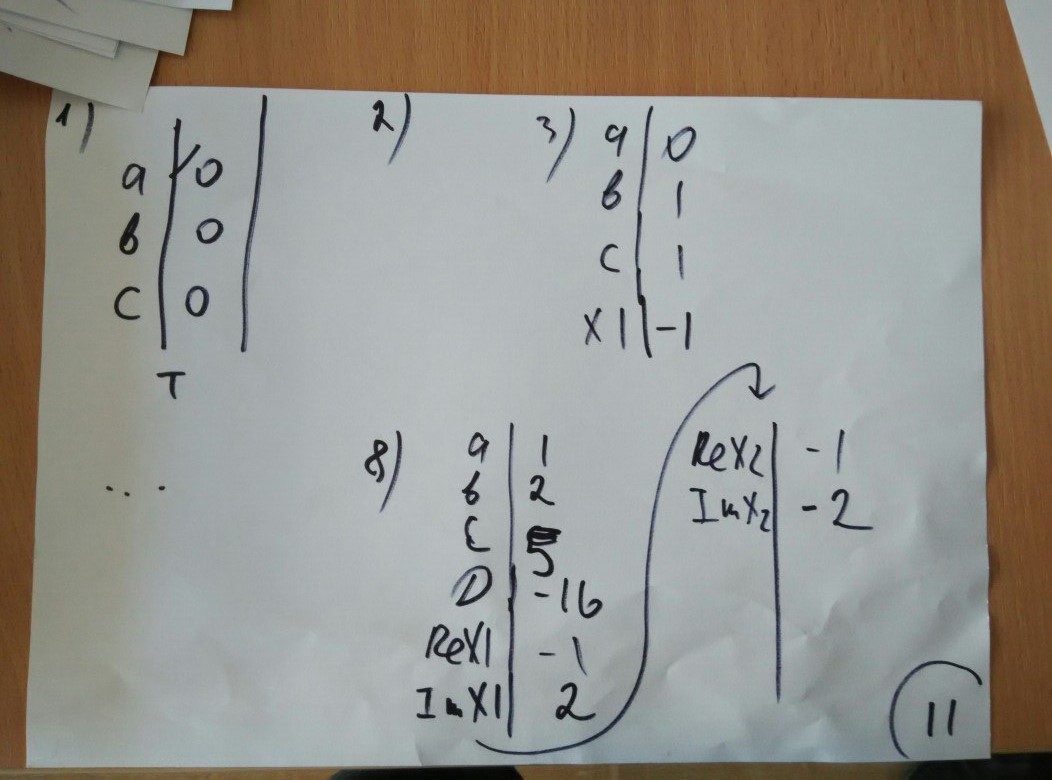 1)
a 0
b 0
c 0
T
2)
3)
a 0
b 1
c 1
x1 -1
...
8)
a 1
b 2
c 5
D -16
Rex1 -1
Imx1 2
Rex2 -1
Imx2 -2
11